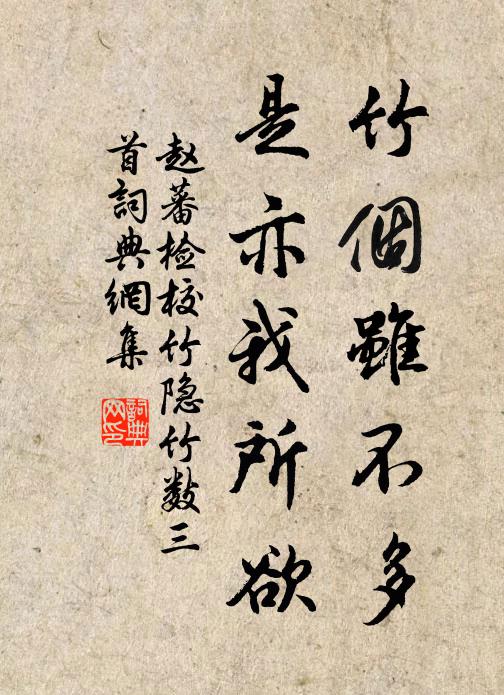 竹個雖不多
是亦我所欲
赵蕃检校竹隐竹数三
首詞典網集
詞典
网印